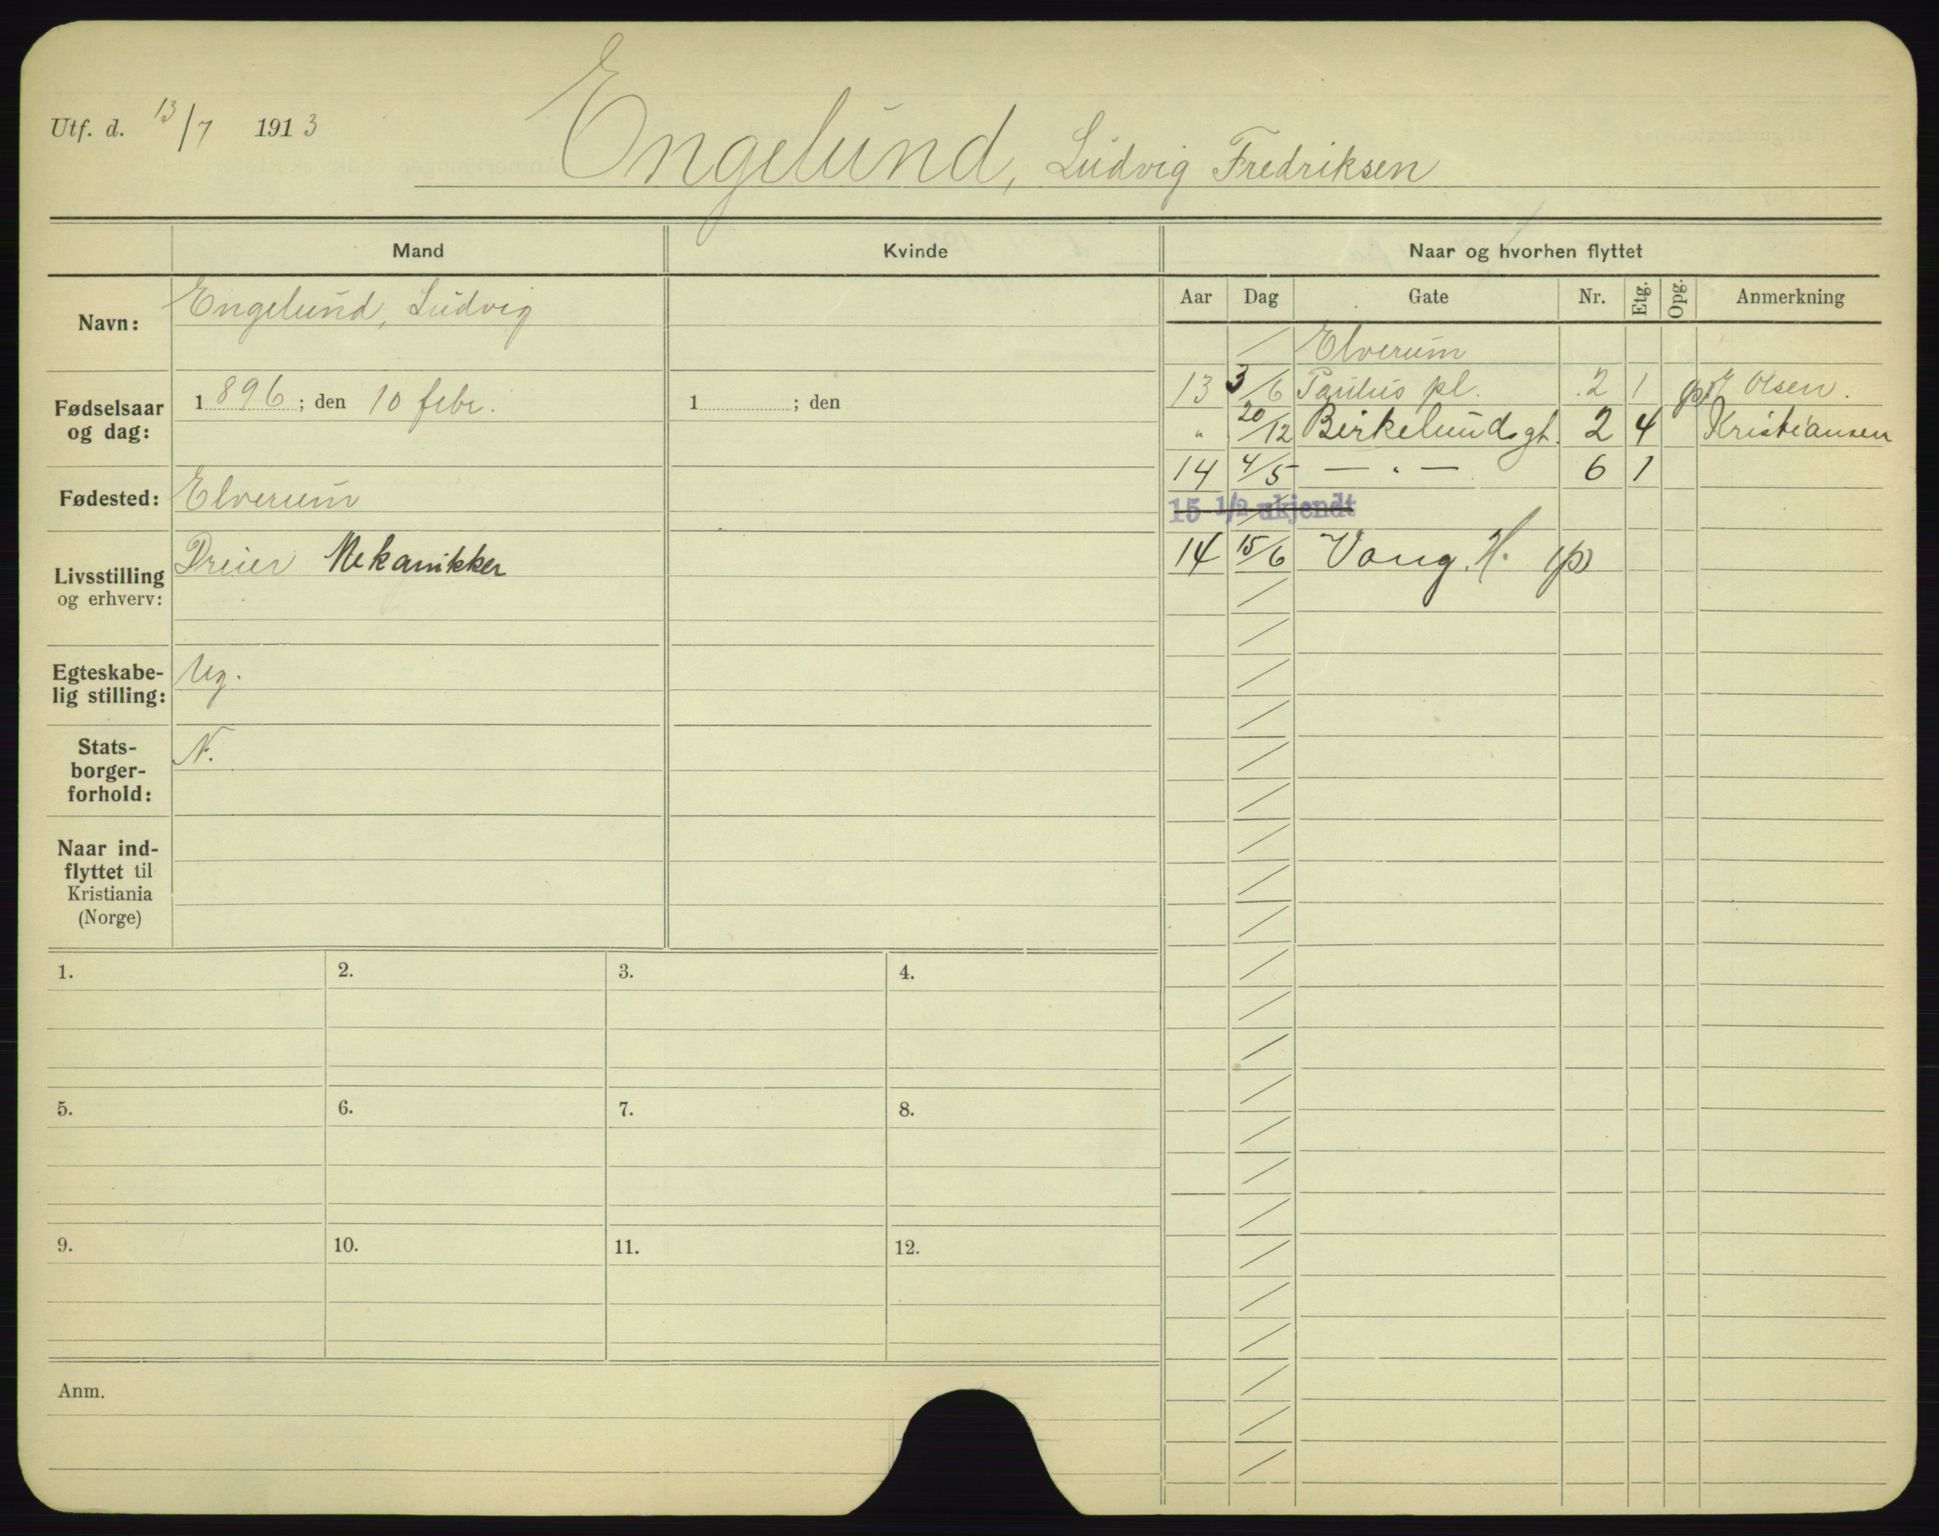 Utf. d. 13/7 1913
Engelund, Ludvig Fredriksen
Mand
Kvinde
Naar og hvorhen flyttet
Navn:
Engelund, Ludvig
Fødselsaar
og dag:
1896; den 10 febr.
1 ; den
Fødested:
Elverum
Livsstilling
og erhverv:
Dreier Mekanikker
Egteskabe-
lig stilling:
Ug.
Stats-
borger-
forhold:
N.
Naar ind-
flyttet til
Kristiania
(Norge)
Aar Dag Gate Nr. Etg. Opg. Anmerkning
/ Elverum
13 3/6 Paulus pl. 2 1 Olsen.
" 20/12 Birkelundsgt. 2 4 Kristiansen
14 4/5 — " — 6 1
15 1/2 ukjendt
14 15/6 Vang. H. (p)
1. 2. 3. 4.
5. 6. 7. 8.
9. 10. 11. 12.
Anm.